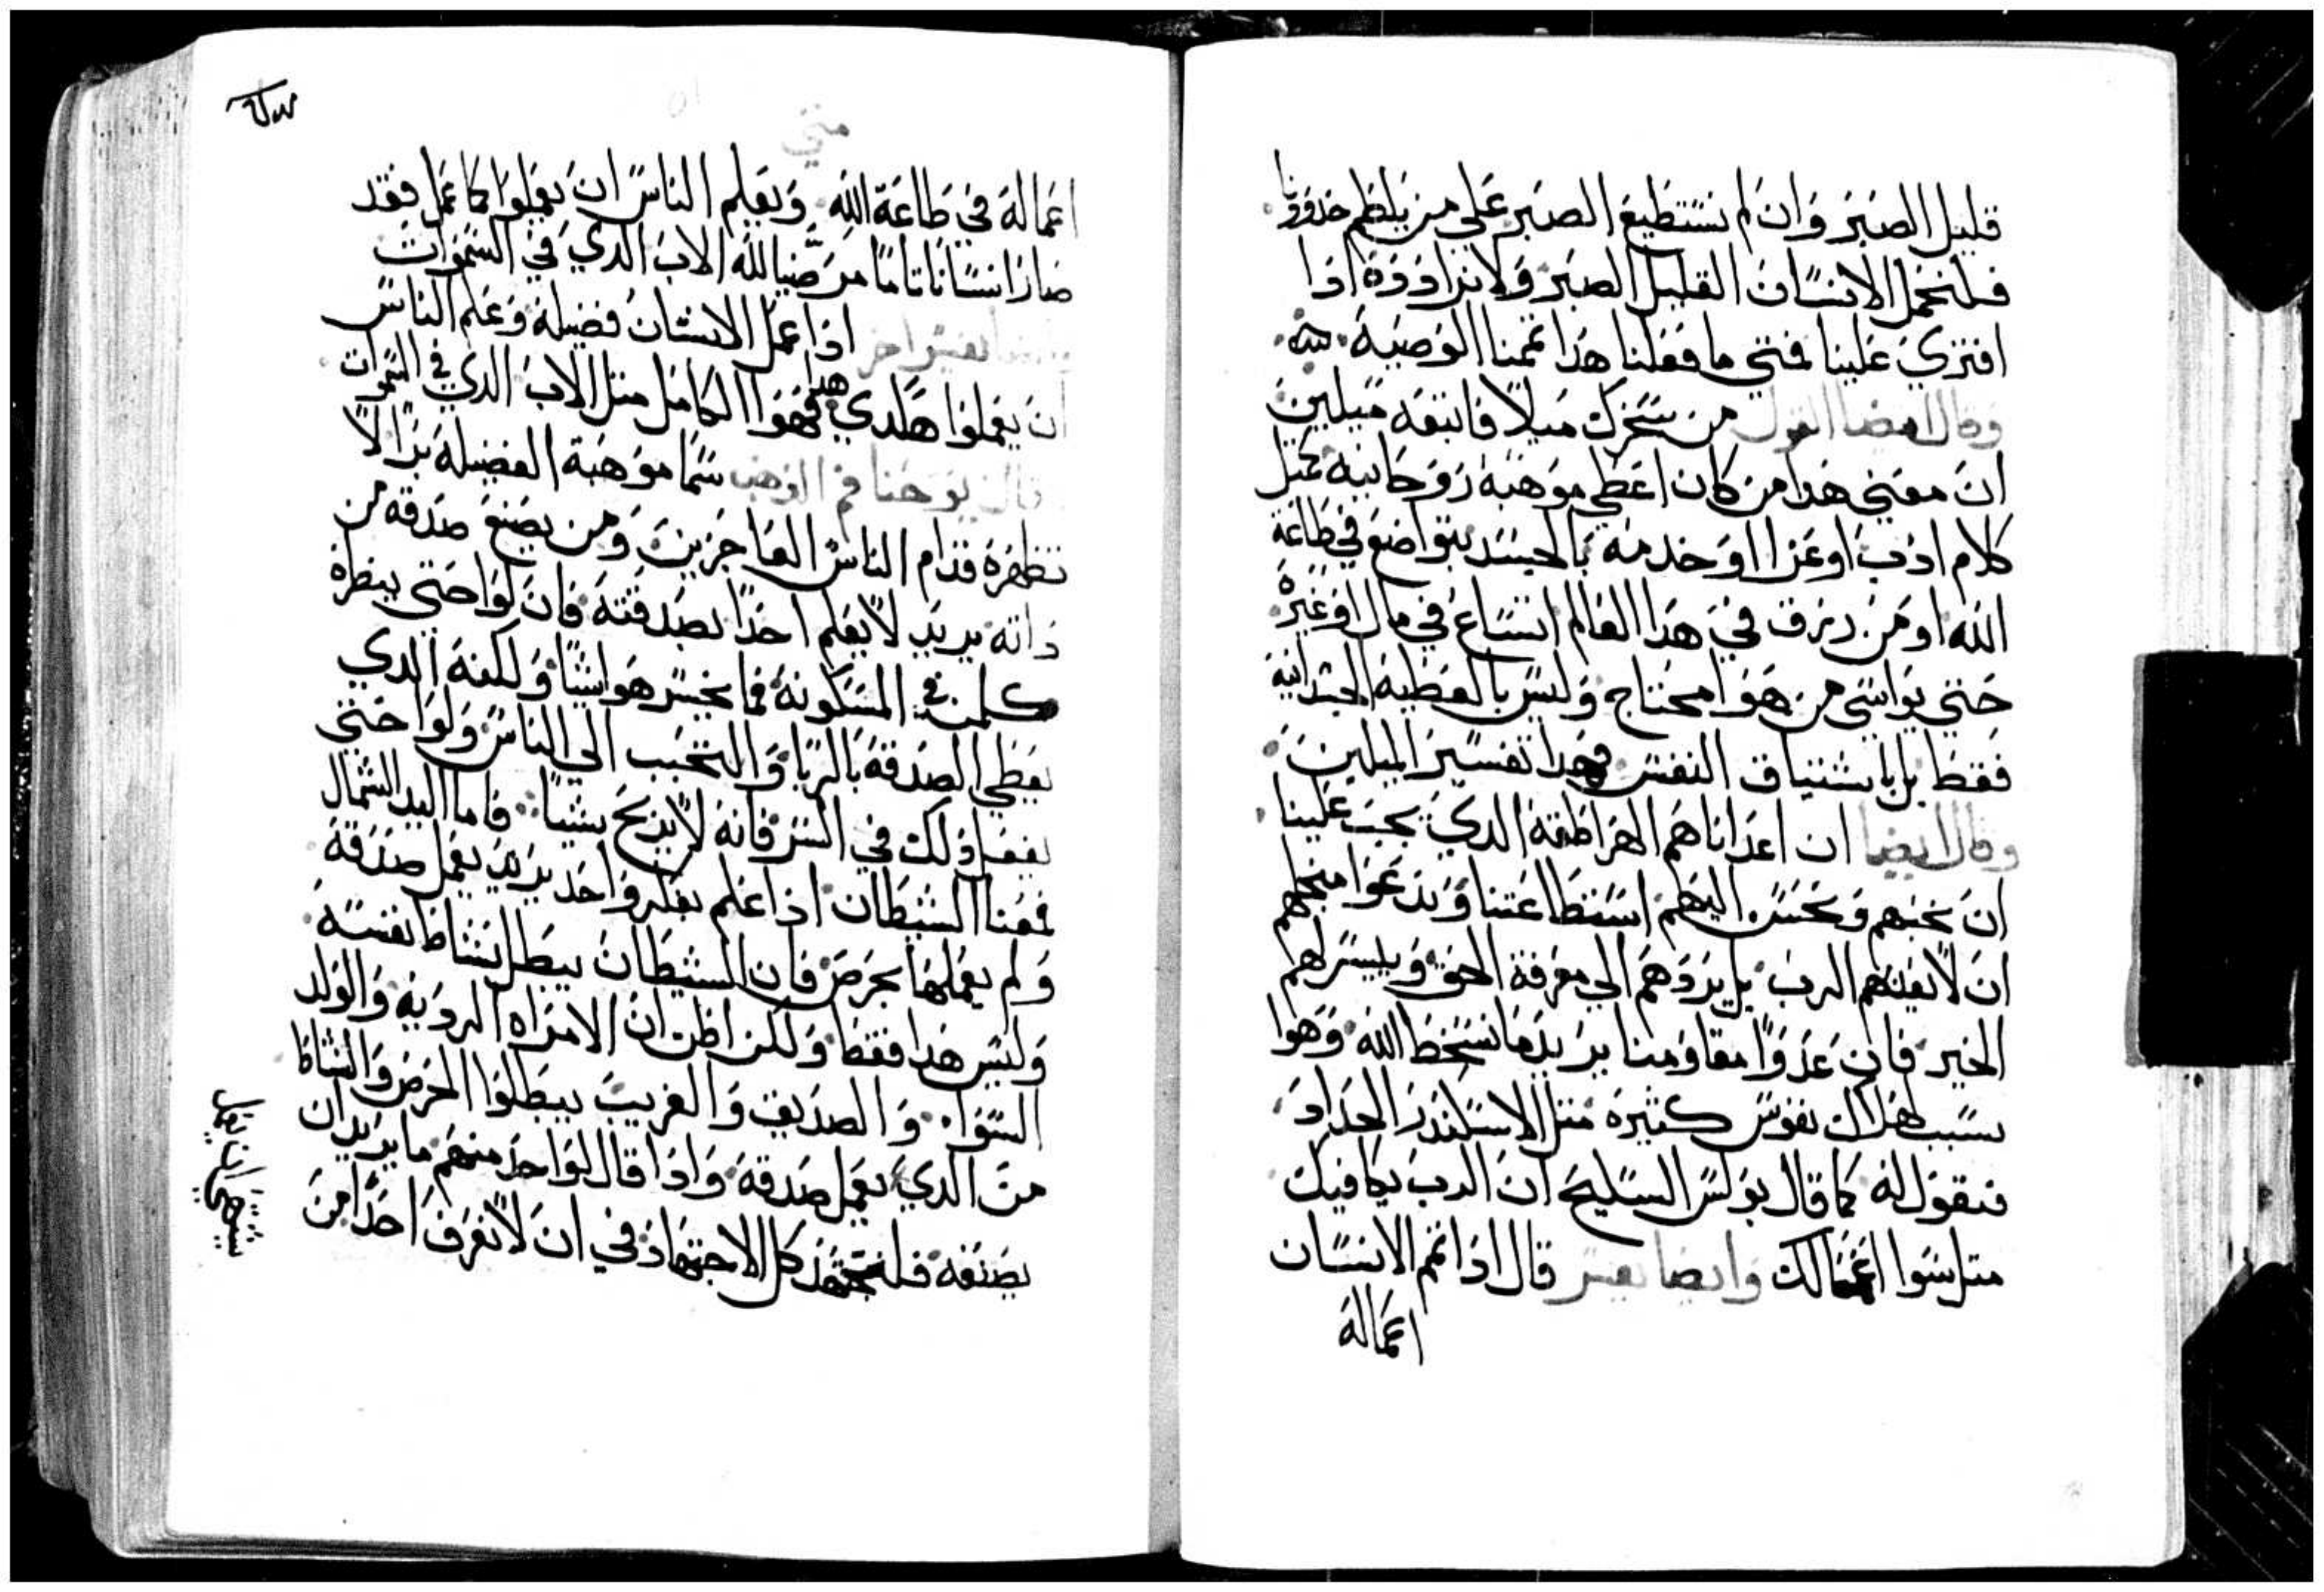 قليل الصبر وان لم نستطيع الصبر علي من يلطم خدودنا
فلنحمل الانسان القليل الصبر ولا نرادده اذا
افتري علينا فمتي ما فعلنا هذا تممنا الوصية
وقال ايضا القول من سخرك ميلا فاتبعه ميلين
ان معني هذا من كان اعطي موهبة روحانيه مثل
كلام ادب او عزا او خدمه بالجسد يتواضع في طاعة
الله او من رزق في هذا العالم اتساع في مال او غيره
حتي يواسي من هوا محتاج وليس بالعطية الجسدانية
فقط بل باشتياق النفس وهذا تفسير الميلين
وقال ايضا ان اعدانا هم الهراطقة الدي يجب علينا
ان نحبهم ونحسن اليهم استطاعتنا وندعوا منجلهم
ان لا يهلكهم الرب بل يردهم الي معرفة الحق وييسر لهم
الخير فان عدوا مقاومنا يريد ما نسخط الله وهوا
بسبب هلاك نفوس كثيرة متل الاسكندر الحداد
فنقول له كما قال بولس السليح ان الرب يكافيك
متل سوا اعمالك وايضا يفسر قال اذا تمم الانسان
اعماله
متي
اعماله في طاعة الله ويعلم الناس ان يعملوا كما عمل فقد
صار انسانا تاما مرضيا لله الاب الدي في السموات
تفسير اخر اذا عمل الانسان فضيلة وعلم الناس
ان يعملوا هكدي هدا فهوا الكامل متل الاب الدي في السموات
قال يوحنا فم الدهب سما موهبة الفضيلة برا لا
تظهره قدام الناس العاجزين ومن يصنع صدقه من
داته يريد لا يعلم احدا بصدقته فان لوا حتي ينظره
كلمن في المسكونة فما يخسر هوا شيا ولكنه الدي
يعطي الصدقة بالريا والتحبب الي الناس ولوا حتي
يفعل ذلك في السر فانه لا يربح شيا فاما اليد الشمال
فمعنا الشيطان اذا علم بفكر واحد يريد يعمل صدقة
ولم يعملها بحرص فان الشيطان يبطل نشاط نفسه
وليس هدا فقط ولكن اظن ان الامراه الردية والولد
السوا والصديق والغريب يبطلوا الحرص والنشاط
من الدي يعمل صدقة واذا قال لواحد منهم ما يريد ان
يصنعه فلنجتهد كل الاجتهاد في ان لا نعرف احدا من